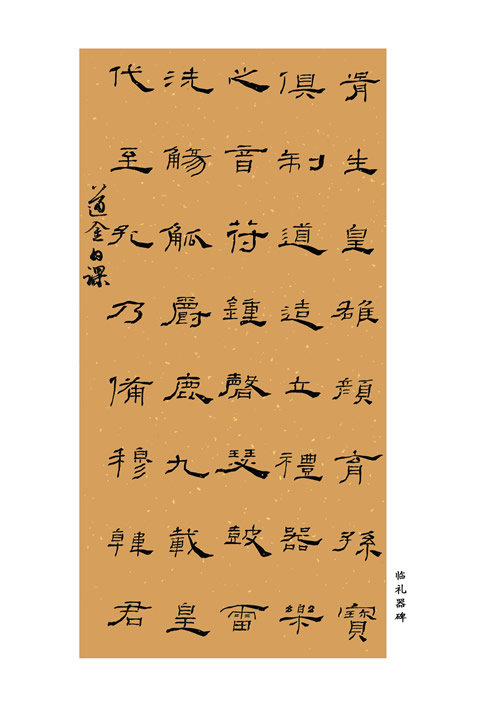 胥生皇雄顔育孫寶
俱制道造立禮器樂
之音符鍾磬瑟鼓雷
洗觴觚爵鹿九載皇
代至孔乃備穆韓君
道金日課
临礼器碑